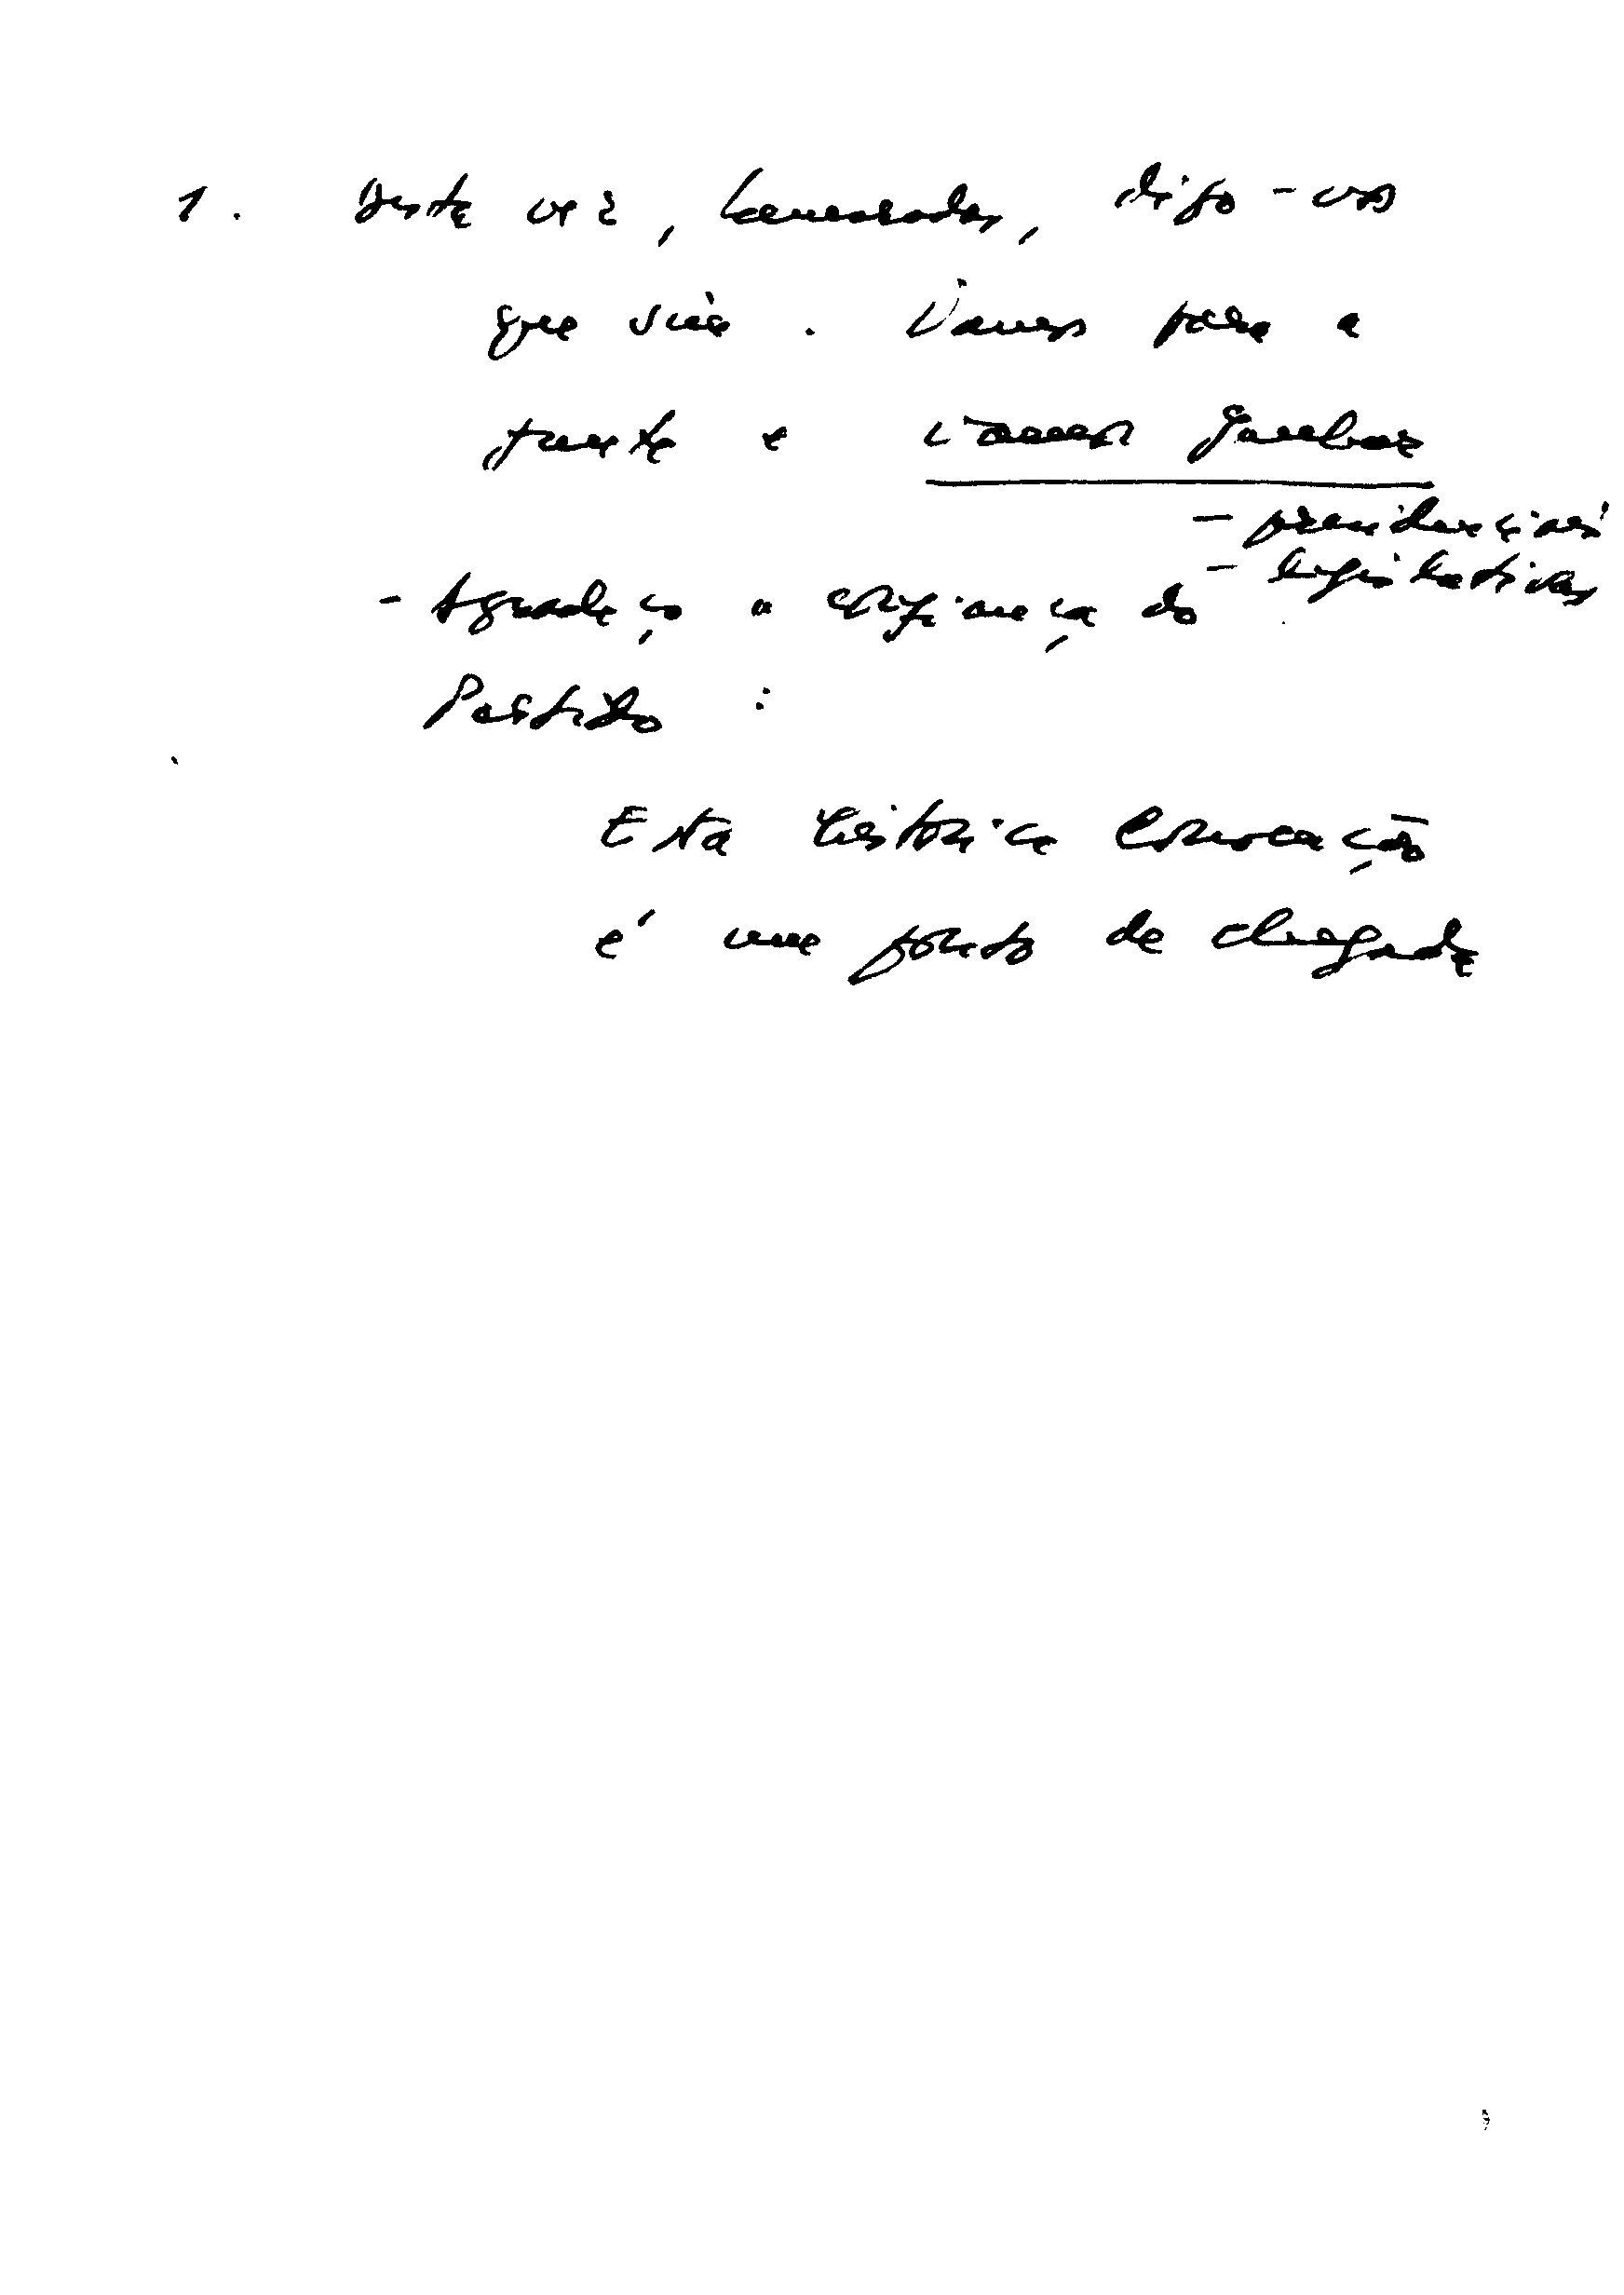 1. Desta vez, Camaradas, digo-vos
que sim. Vamos para a
frente e vamos ganhar
- presidenciais
- legislativas
- Agradeço a confiança do
Partido :
Esta histórica Convocação
é um ponto de chegada